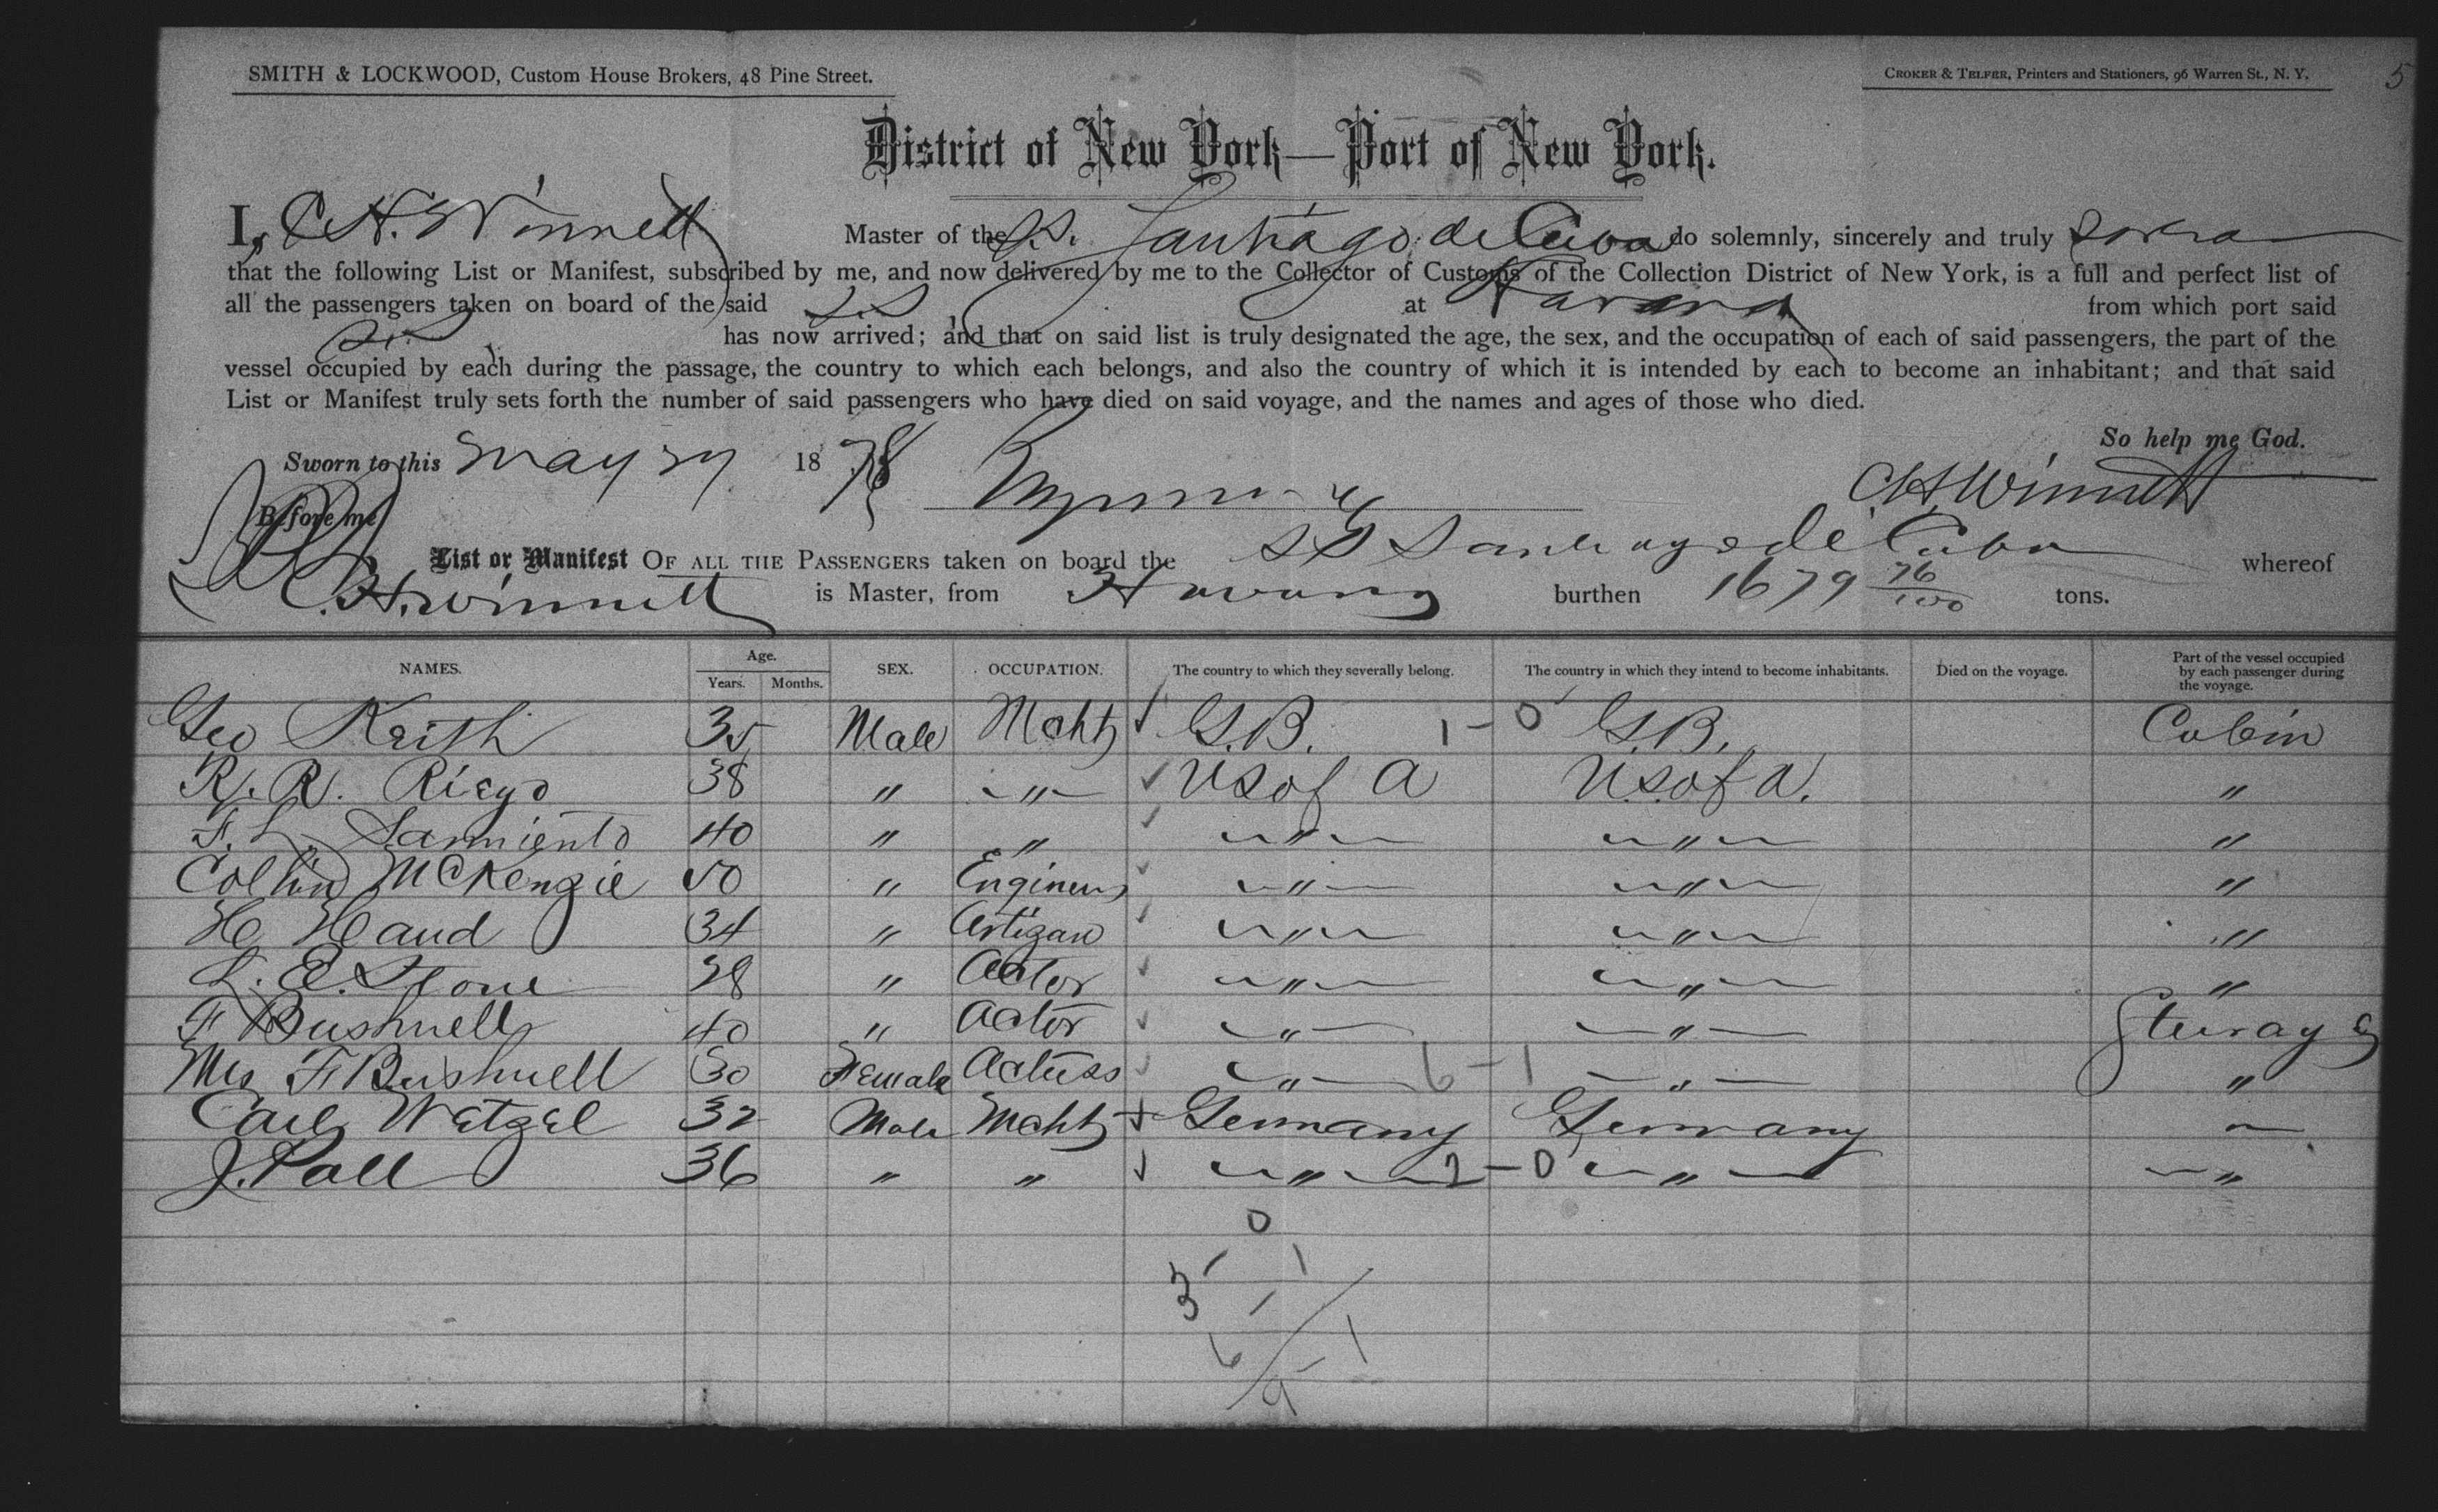 SMITH & LOCKWOOD, Custom House Brokers, 48 Pine Street.
CROKER & TELFER, Printers and Stationers, 96 Warren St., N. Y.
5
District of New York—Port of New York.
I, C H. Winnett Master of the S.S. Santiago de Cuba do solemnly, sincerely and truly swear
that the following List or Manifest, subscribed by me, and now delivered by me to the Collector of Customs of the Collection District of New York, is a full and perfect list of
all the passengers taken on board of the said S.S at Havana from which port said
S.S has now arrived; and that on said list is truly designated the age, the sex, and the occupation of each of said passengers, the part of the
vessel occupied by each during the passage, the country to which each belongs, and also the country of which it is intended by each to become an inhabitant; and that said
List or Manifest truly sets forth the number of said passengers who have died on said voyage, and the names and ages of those who died.
So help me God.
Sworn to this May 1878
C H Winnett
Before me
List or Manifest OF ALL THE PASSENGERS taken on board the SS Santiago de Cuba whereof
C. H. Winnett is Master, from Havana burthen 1679 76/100 tons.
NAMES. Age. Years. Months. SEX. OCCUPATION. The country to which they severally belong. The country in which they intend to become inhabitants. Died on the voyage. Part of the vessel occupied by each passenger during the voyage.
Geo Keith 35 Male Mcht G.B. 1-0 G.B. Cabin
R. R. Rieyo 38 " " U S of A U.S. of A. "
F. L. Sarmiento 40 " " " " "
Collin McKenzie 50 " Engineer " " "
H Haud 34 " Artizan " " "
L. E. Stone 28 " Actor " " "
F Bushnell 40 " Actor " " Sterage
Mrs F Bushnell 30 Female Actress " 6-1 " "
Carl Wetzel 32 Male Mcht Germany Germany "
J. Pall 36 " " " 2-0 " "
0
3 1
6 1
9